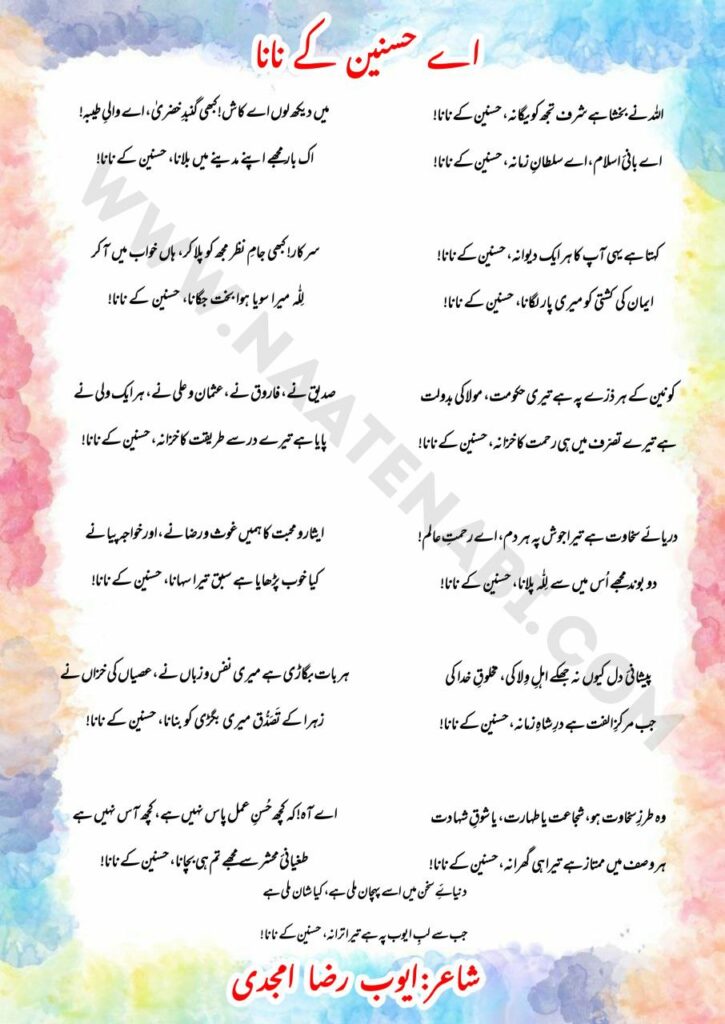 اے حسنین کے نانا
اللہ نے بخشا ہے شرف تجھ کو یگانہ، حسنین کے نانا!
اے بانیِ اسلام، اے سلطانِ زمانہ، حسنین کے نانا!
کہتا ہے یہی آپ کا ہر ایک دیوانہ، حسنین کے نانا!
ایمان کی کشتی کو میری پار لگانا، حسنین کے نانا!
کونین کے ہر ذرّے پہ ہے تیری حکومت، مولا کی بدولت
ہے تیرے تصرف میں ہی رحمت کا خزانہ، حسنین کے نانا!
دریائے سخاوت ہے تیرا جوش پہ ہر دم، اے رحمتِ عالم!
دو بوند مجھے اُس میں سے لِلّٰہ پلانا، حسنین کے نانا!
پیشانیِ دل کیوں نہ جھکے اہلِ وِلا کی، مخلوقِ خدا کی
جب مرکزِ الفت ہے درِ شاہِ زمانہ، حسنین کے نانا!
وہ طرزِ سخاوت ہو، شجاعت یا طہارت، یا شوقِ شہادت
ہر وصف میں ممتاز ہے تیرا ہی گھرانہ، حسنین کے نانا!
میں دیکھ لوں اے کاش! کبھی گنبدِ خضریٰ، اے والیِ طیبہ!
اک بار مجھے اپنے مدینے میں بلانا، حسنین کے نانا!
سرکار! کبھی جامِ نظر مجھ کو پلا کر، ہاں خواب میں آ کر
لِلّٰہ میرا سویا ہوا بخت جگانا، حسنین کے نانا!
صدیق نے، فاروق نے، عثمان و علی نے، ہر ایک ولی نے
پایا ہے تیرے در سے طریقت کا خزانہ، حسنین کے نانا!
ایثار و محبت کا ہمیں غوث و رضا نے، اور خواجہ پیا نے
کیا خوب پڑھایا ہے سبق تیرا سہانا، حسنین کے نانا!
ہر بات بگاڑی ہے میری نفس و زباں نے، عصیاں کی خزاں نے
زہرا کے تَصَدُّق میری بگڑی کو بنانا، حسنین کے نانا!
اے آہ! کہ کچھ حُسنِ عمل پاس نہیں ہے، کچھ آس نہیں ہے
طغیانیِ محشر سے مجھے تم ہی بچانا، حسنین کے نانا!
دنیائے سخن میں اسے پہچان ملی ہے، کیا شان ملی ہے
جب سے لبِ ایوب پہ ہے تیرا ترانہ، حسنین کے نانا!
شاعر: ایوب رضا امجدی
WWW.NAATENABI.COM